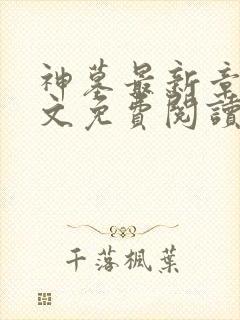 神墓最新章
文免費閱讀
千落楓葉